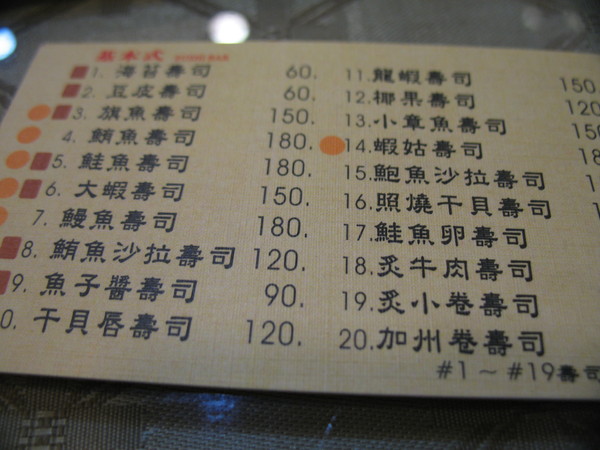 基本式 SUSHI BAR
1. 海苔壽司 60.
2. 豆皮壽司 60.
3. 旗魚壽司 150.
4. 鮪魚壽司 180.
5. 鮭魚壽司 180.
6. 大蝦壽司 150.
7. 鰻魚壽司 180.
8. 鮪魚沙拉壽司 120.
9. 魚子醬壽司 90.
0. 干貝唇壽司 120.
11. 龍蝦壽司 150
12. 椰果壽司 120
13. 小章魚壽司 150
14. 蝦姑壽司
15. 鮑魚沙拉壽司
16. 照燒干貝壽司
17. 鮭魚卵壽司
18. 炙牛肉壽司
19. 炙小卷壽司
20. 加州卷壽司
#1 ~ #19壽司